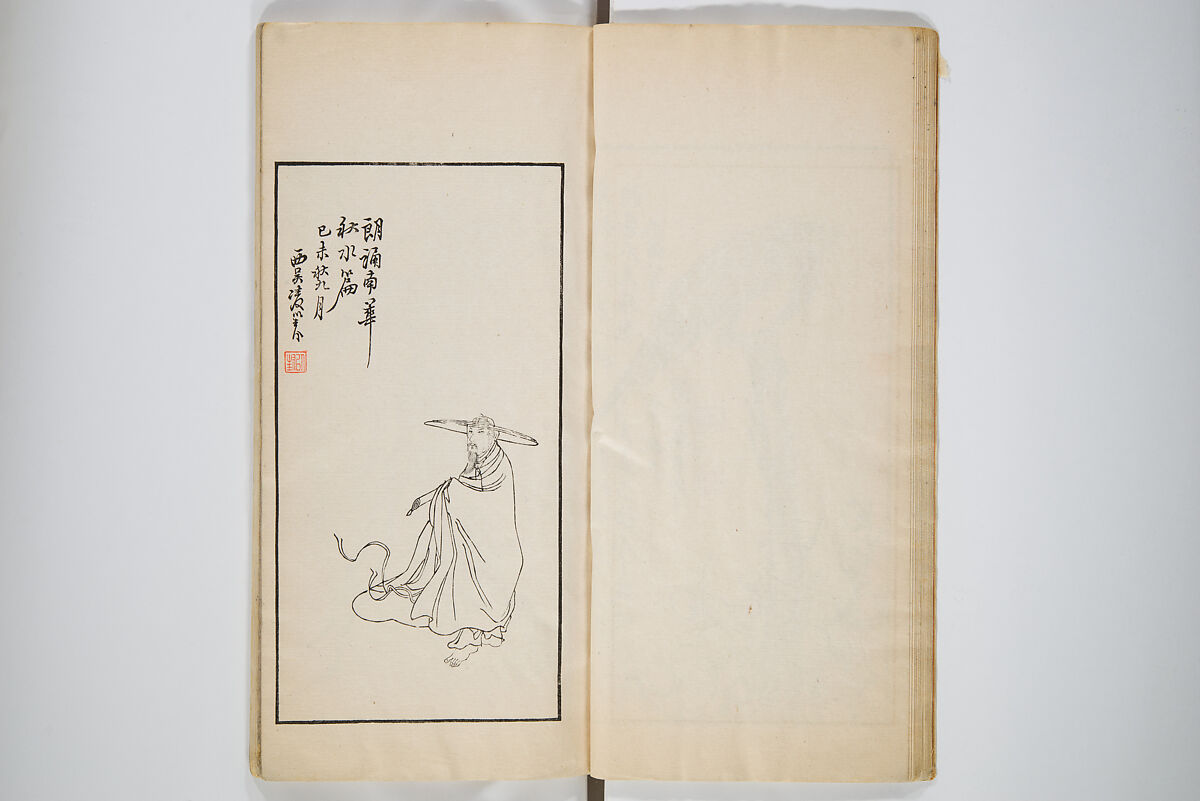 朗誦南華
秋水篇
己未秋九月
西吳凌